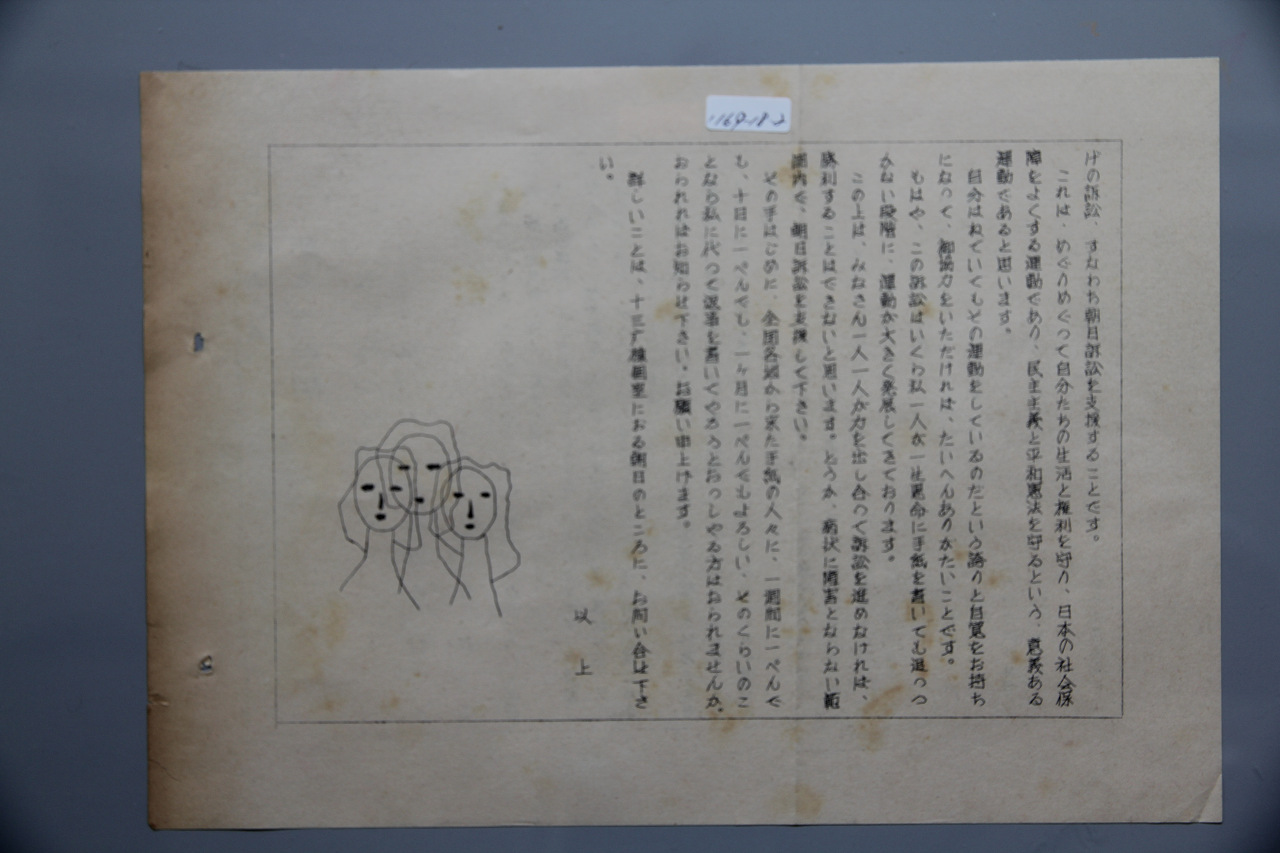 1169-18-2
けの訴訟、すなわち朝日訴訟を支援することです。
これは、めぐりめぐって自分たちの生活と権利を守り、日本の社会保
障をよくする運動であり、民主主義と平和憲法を守るという、意義ある
運動であると思います。
自分はねていてもその運動をしているのだという誇りと自覚をお持ち
になって、御協力をいただければ、たいへんありがたいことです。
もはや、この訴訟はいくら私一人が一生懸命に手紙を書いても追っつ
かない段階に、運動が大きく発展してきております。
この上は、みなさん一人一人が力を出し合って訴訟を進めなければ、
勝利することはできないと思います。どうか、病状に障害とならない範
囲内で、朝日訴訟を支援して下さい。
その手はじめに、全国各地から来た手紙の人々に、一週間に一ぺんで
も、十日に一ぺんでも、一ヶ月に一ぺんでもよろしい、そのくらいのこ
となら私に代って返事を書いてやろうとおっしゃる方はおられませんか。
おられればお知らせ下さい。お願い申上げます。
詳しいことは、十三病棟個室におる朝日のところに、お問い合せ下さ
い。
以上